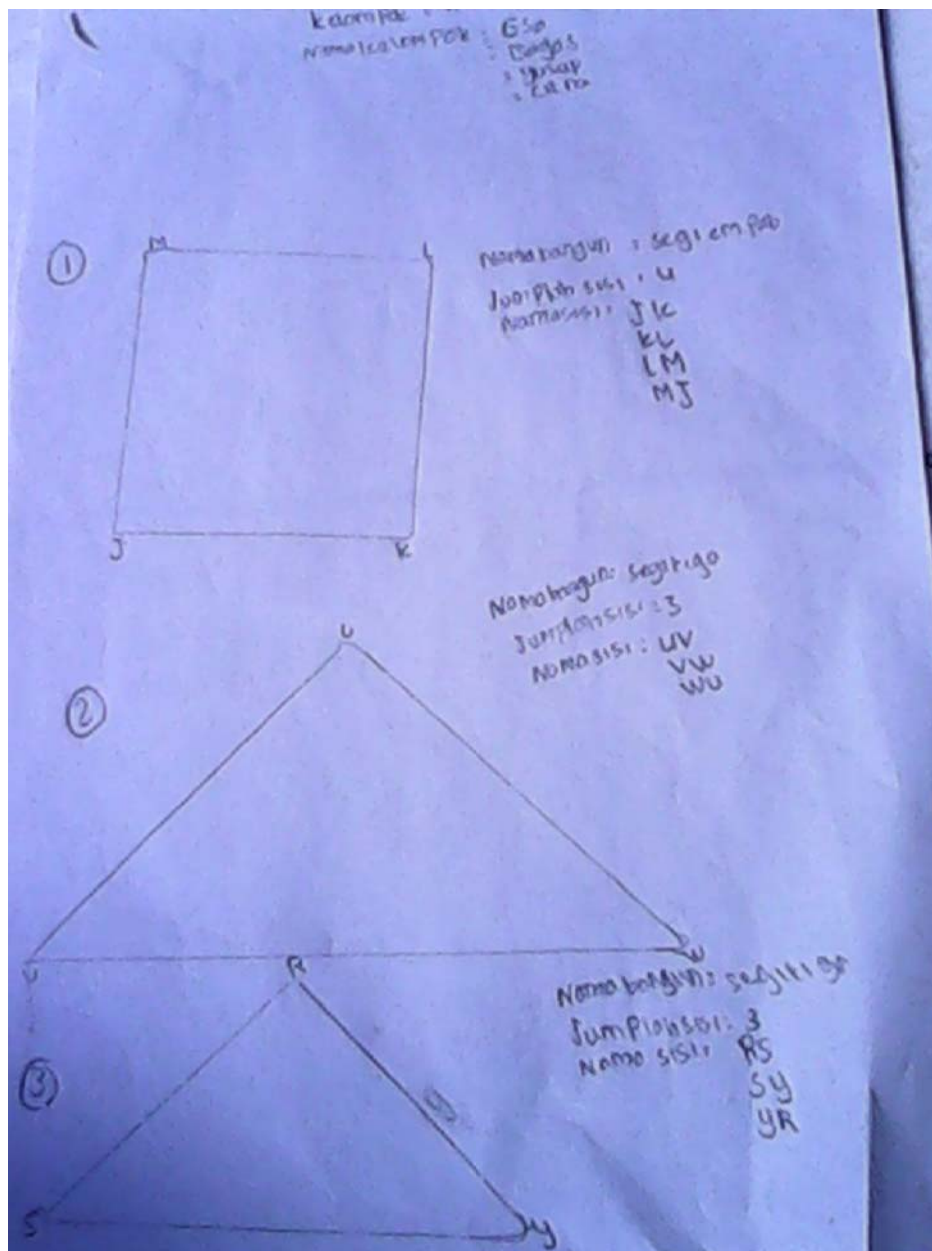 Kelompok :
Nama kelompok : Esa
: Bagas
: Yusup
①
M L
J K
Nama bangun : segi empat
Jumplah sisi : 4
Nama sisi : JK
KL
LM
MJ
②
U
V W
Nama bangun : segitiga
Jumplah sisi : 3
Nama sisi : UV
VW
WU
③
R
S y
Nama bangun : segitiga
Jumplah sisi : 3
Nama sisi : RS
Sy
yR